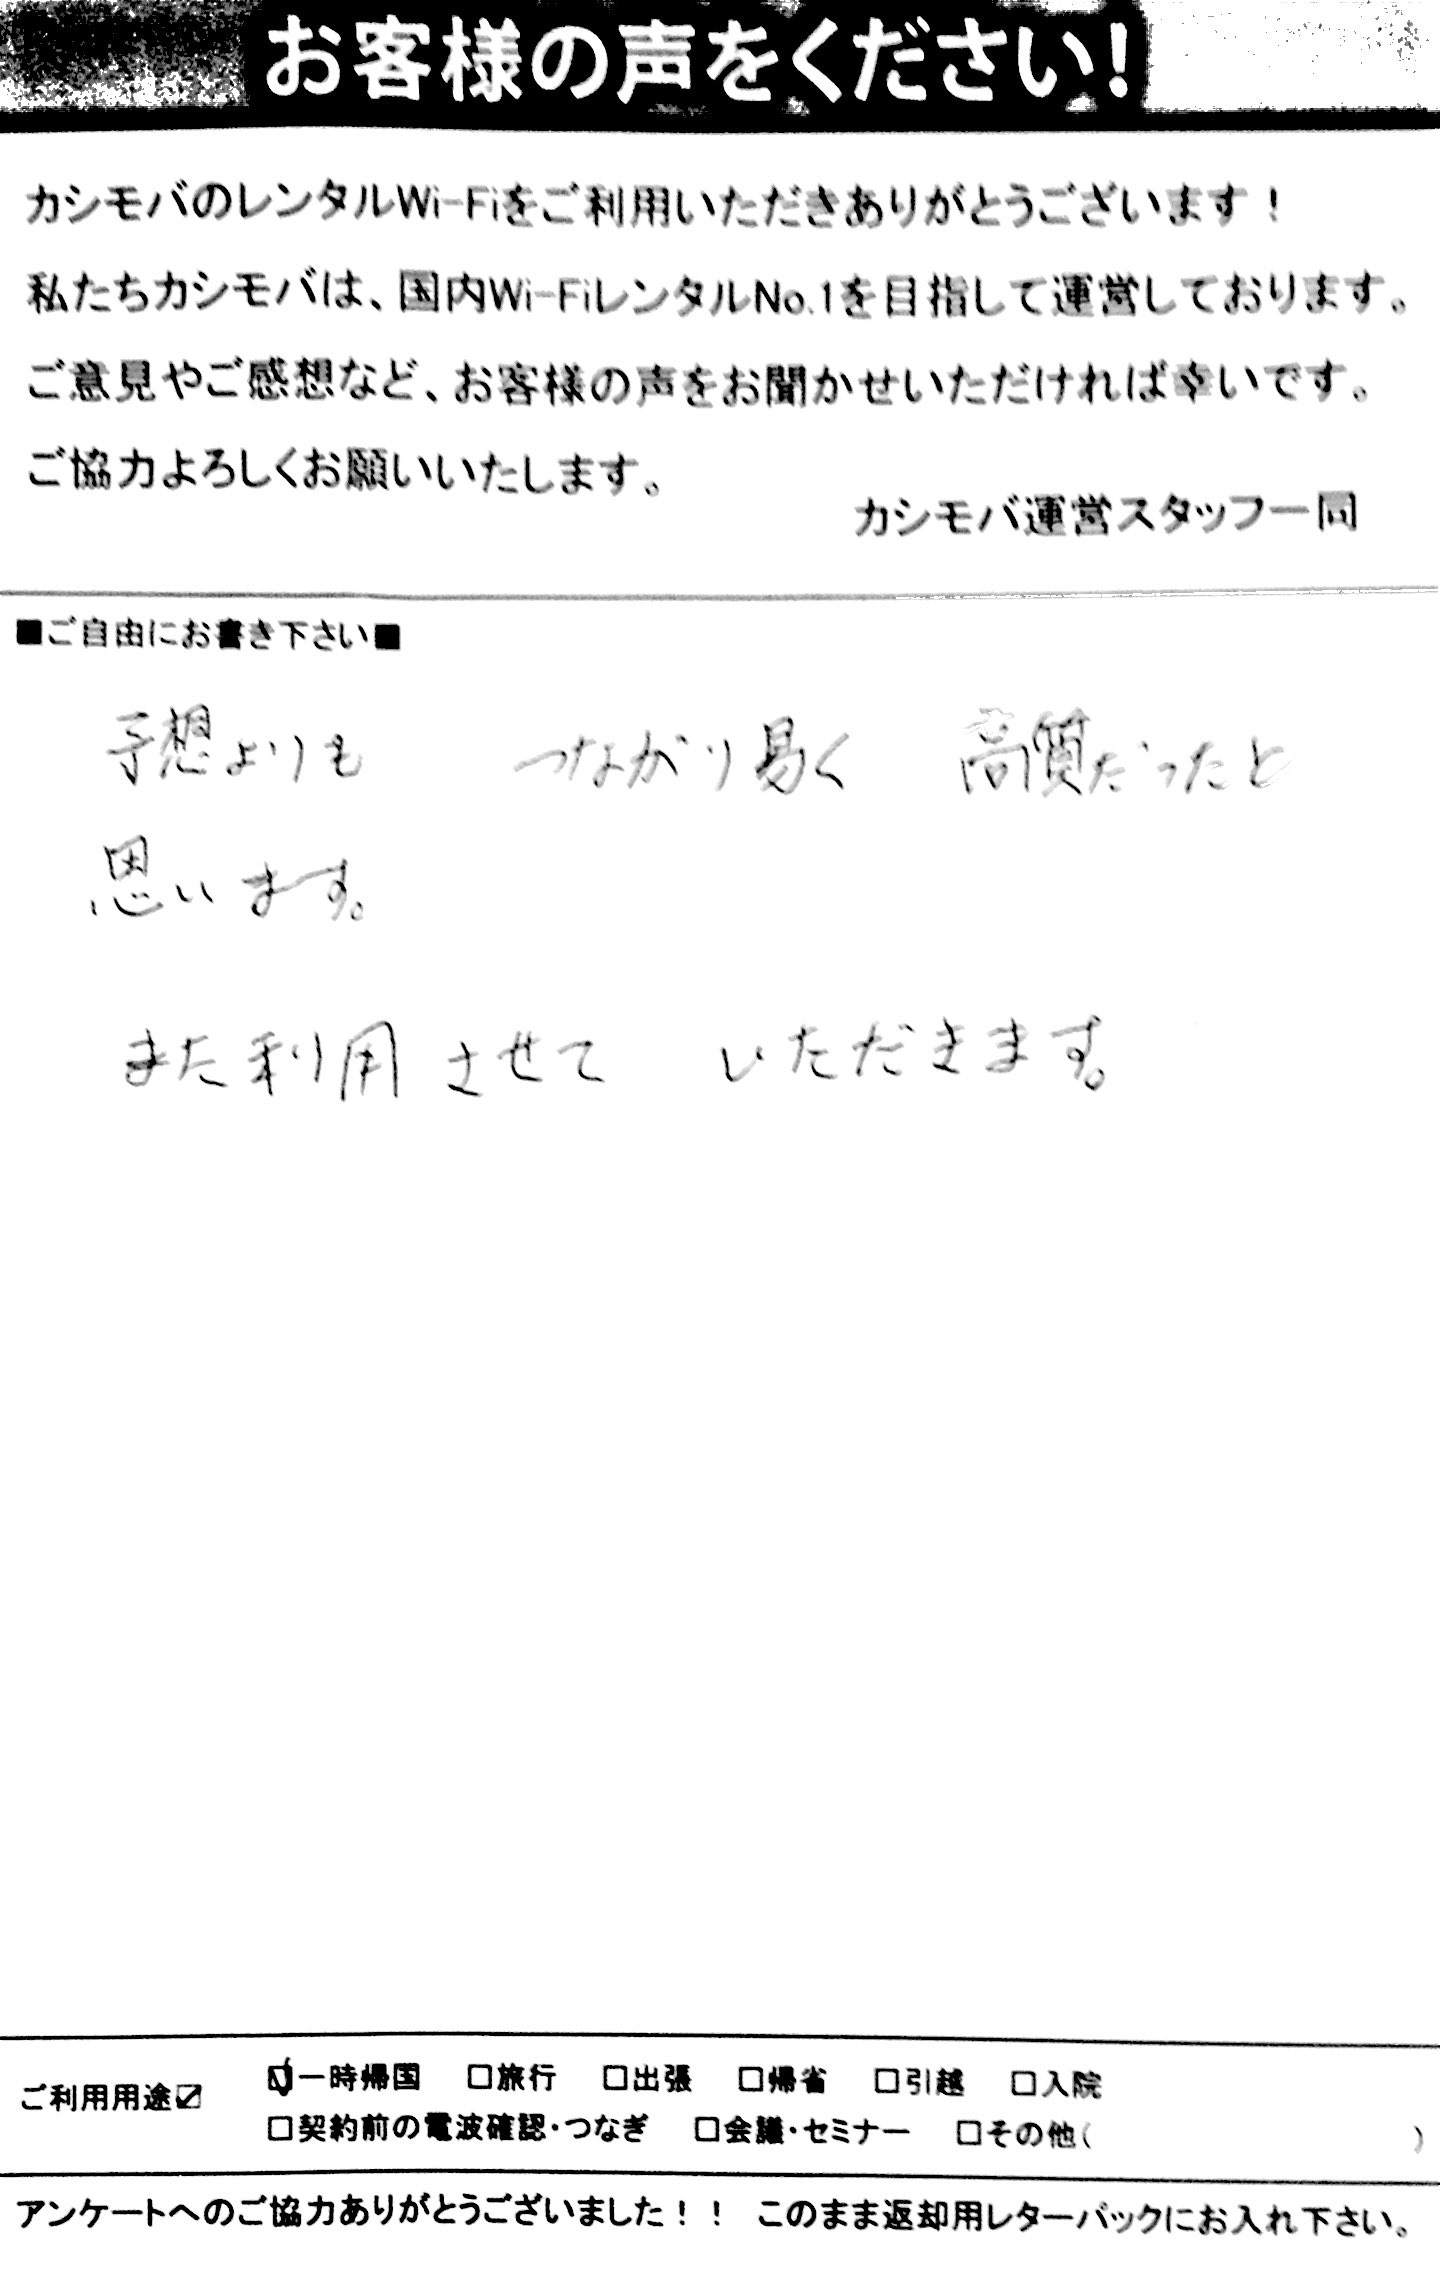 お客様の声をください!
カシモバのレンタルWi-Fiをご利用いただきありがとうございます!
私たちカシモバは、国内Wi-FiレンタルNo.1を目指して運営しております。
ご意見やご感想など、お客様の声をお聞かせいただければ幸いです。
ご協力よろしくお願いいたします。
カシモバ運営スタッフ一同
■ご自由にお書き下さい■
予想よりも つながり易く 高質だったと
思います。
また利用させて いただきます。
ご利用用途☑ ☑一時帰国 □旅行 □出張 □帰省 □引越 □入院
□契約前の電波確認・つなぎ □会議・セミナー □その他( )
アンケートへのご協力ありがとうございました!! このまま返却用レターパックにお入れ下さい。